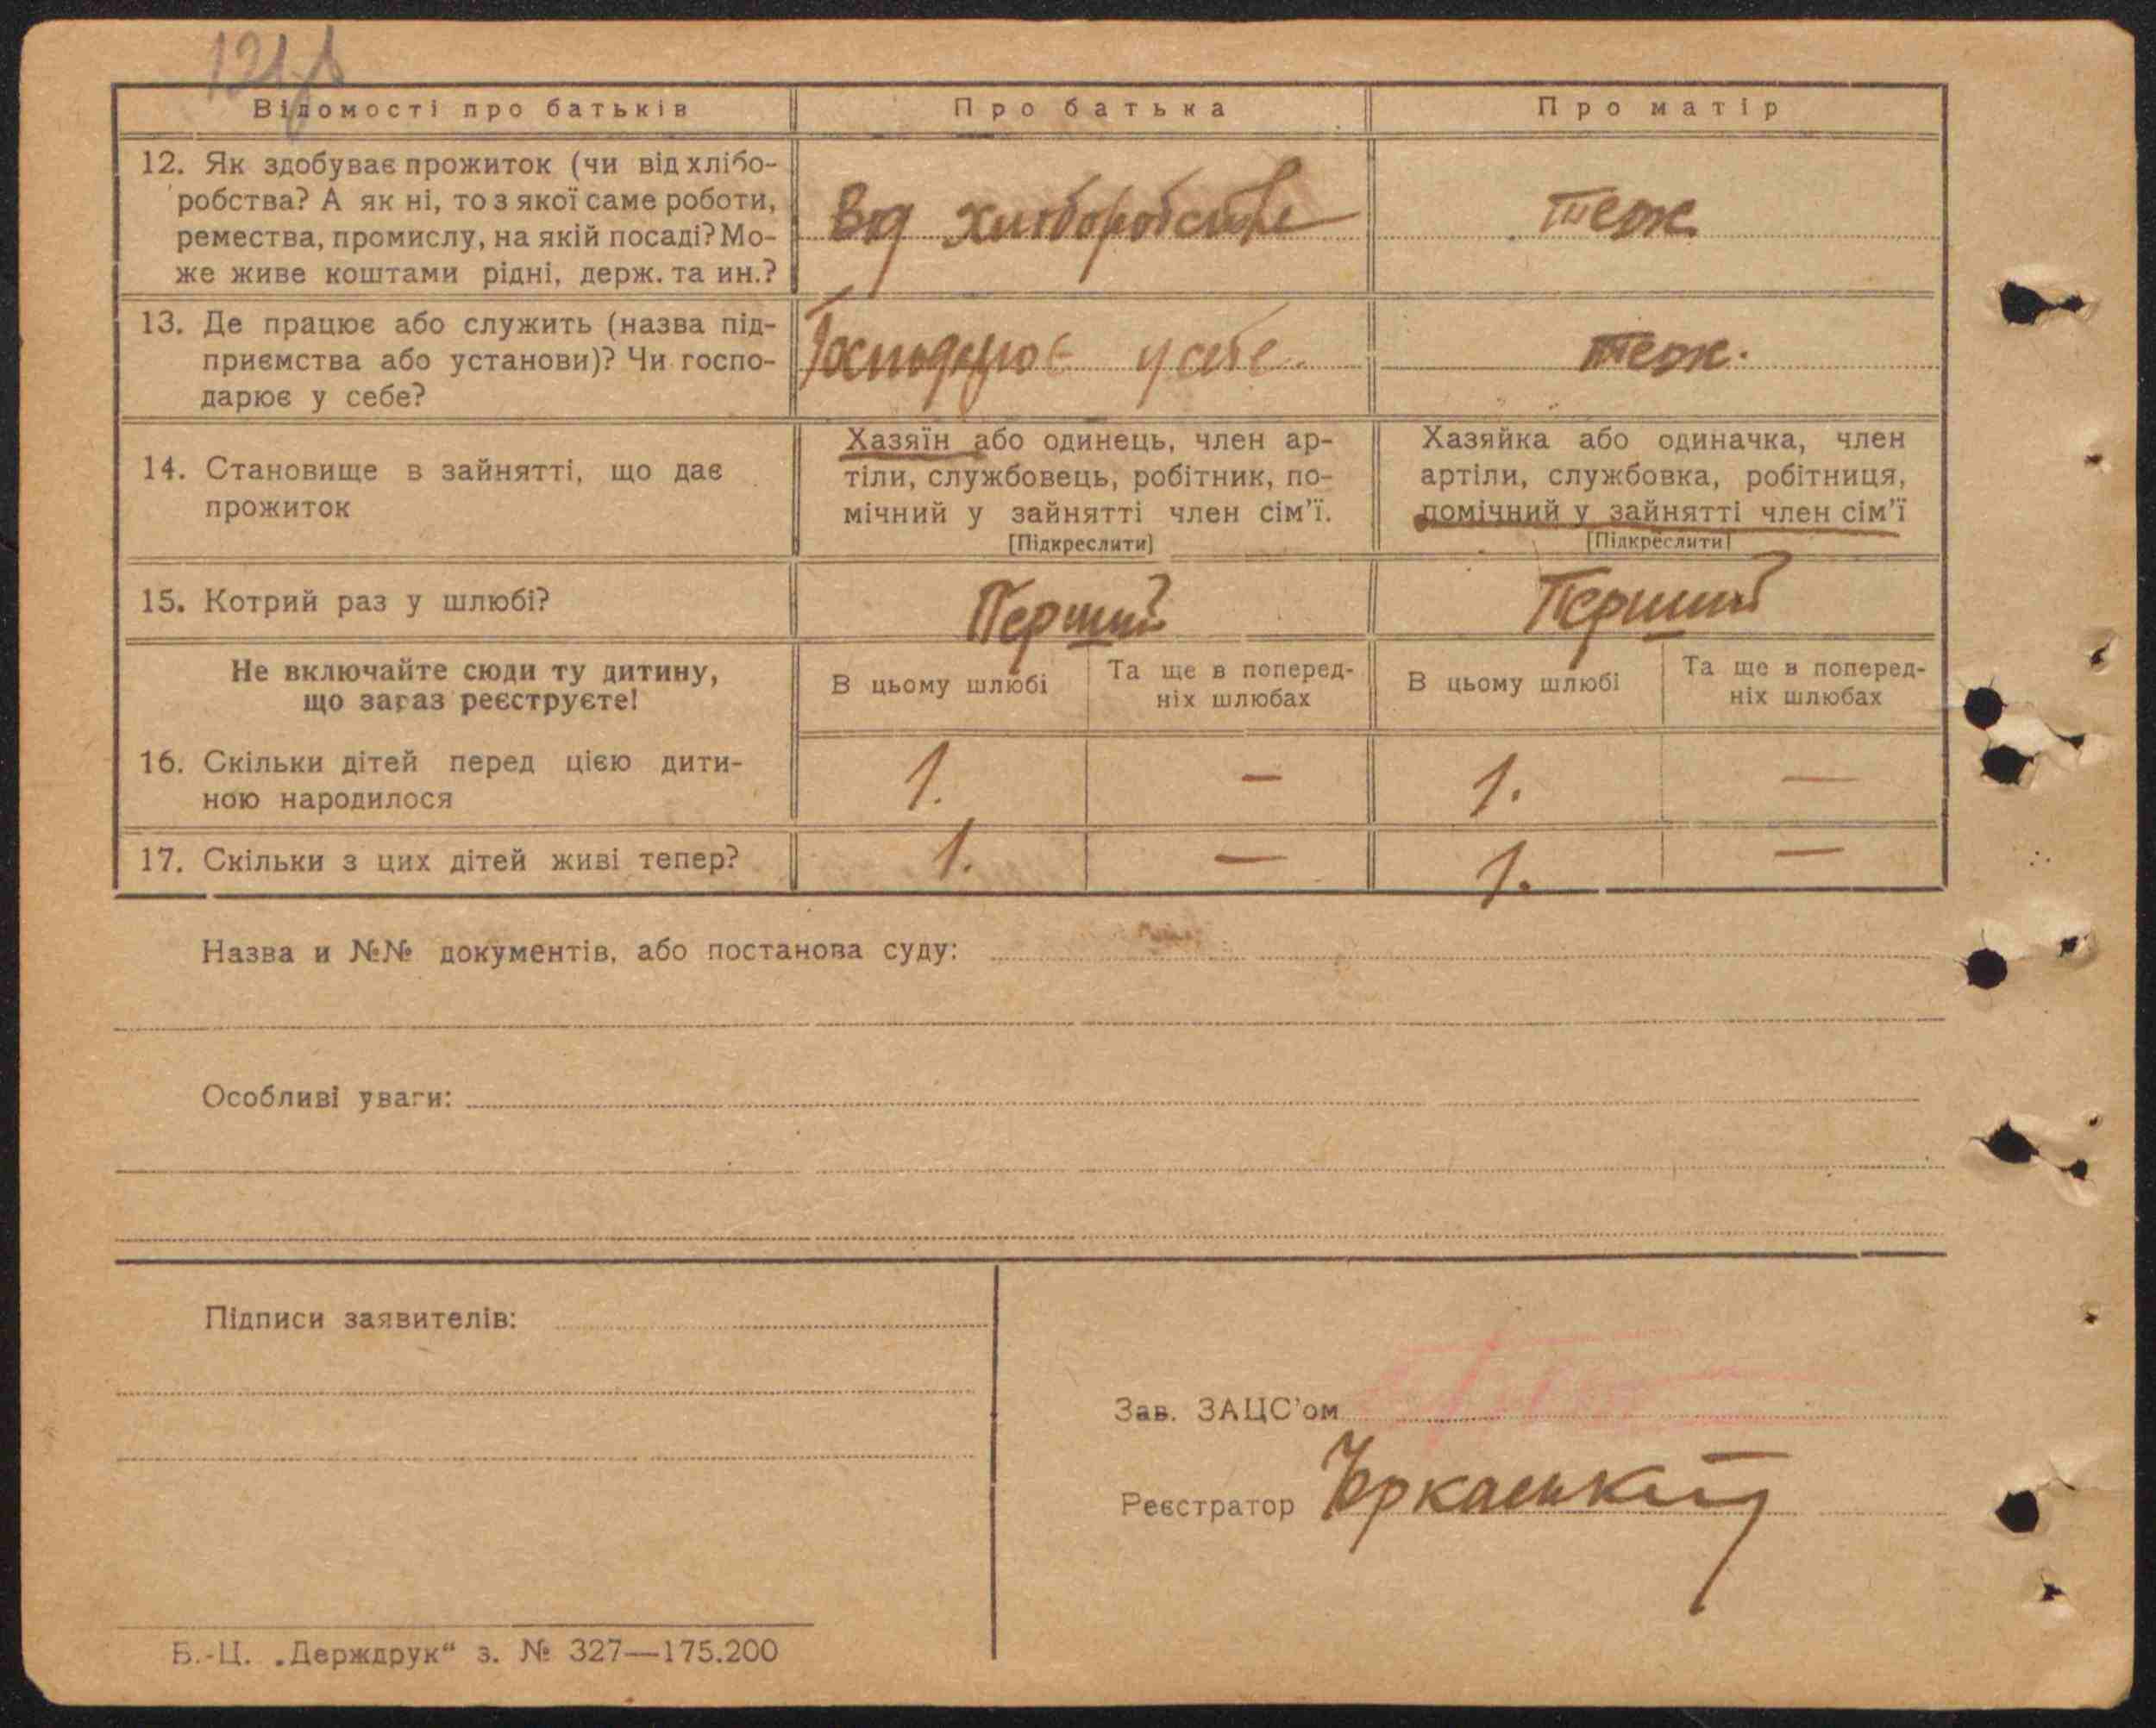 Відомості про батьків
Про батька
Про матір
12. Як здобуває прожиток (чи від хлібо-
робства? А як ні, то з якої саме роботи,
ремества, промислу, на якій посаді? Мо-
же живе коштами рідні, держ. та ин.?
Від хліборобства
теж
13. Де працює або служить (назва під-
приємства або установи)? Чи госпо-
дарює у себе?
Господарює у себе.
теж.
14. Становище в зайнятті, що дає
прожиток
Хазяїн або одинець, член ар-
тіли, службовець, робітник, по-
мічний у зайнятті член сім'ї.
[Підкреслити]
Хазяйка або одиначка, член
артіли, службовка, робітниця,
помічний у зайнятті член сім'ї
[Підкреслити]
15. Котрий раз у шлюбі?
Перший
Перший
Не включайте сюди ту дитину,
що зараз реєструєте!
В цьому шлюбі
Та ще в поперед-
ніх шлюбах
В цьому шлюбі
Та ще в поперед-
ніх шлюбах
16. Скільки дітей перед цією дити-
ною народилося
1. — 1. —
17. Скільки з цих дітей живі тепер?
1. — 1. —
Назва и №№ документів, або постанова суду:
Особливі уваги:
Підписи заявителів:
Зав. ЗАЦС'ом
Реєстратор Черкаський
Б.-Ц. „Держдрук“ з. № 327—175.200